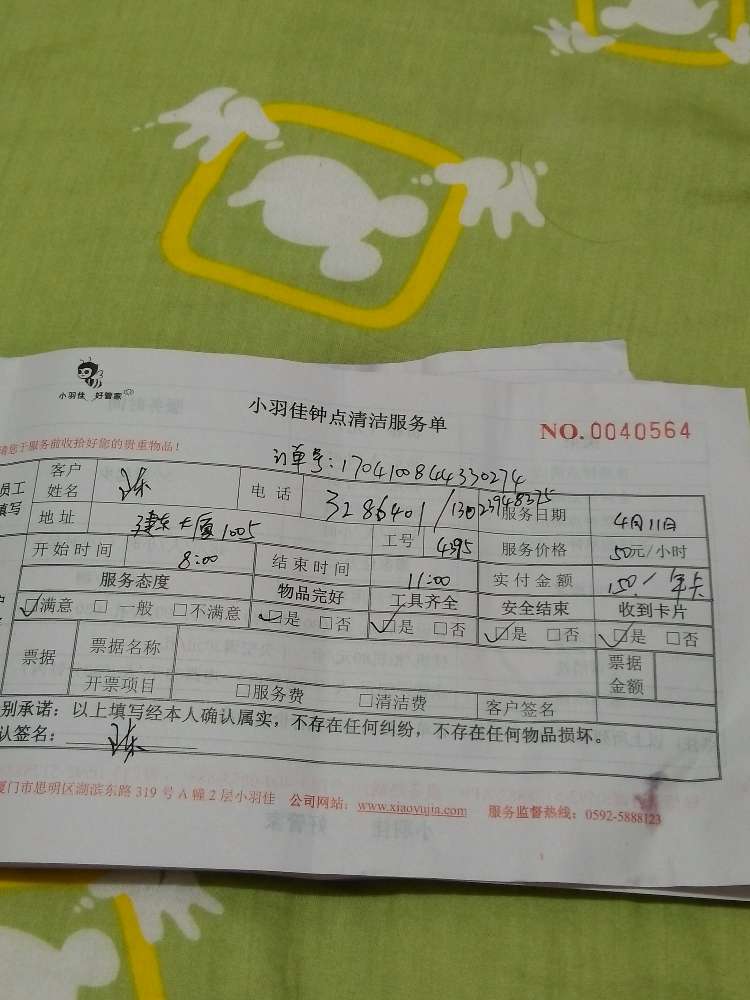 小羽佳 好管家
小羽佳钟点清洁服务单
NO.0040564
请您于服务前收拾好您的贵重物品！
订单号：1704100844330274
员工
填写
客户
姓名
电话 3286401/13023948375 服务日期 4月11日
地址 捷东大厦1005 工号 4395 服务价格 50元/小时
开始时间 8:00 结束时间 11:00 实付金额 150/年卡
服务态度 物品完好 工具齐全 安全结束 收到卡片
☑满意 □一般 □不满意 ☑是 □否 ☑是 □否 ☑是 □否 ☑是 □否
票据 票据名称 票据
金额
开票项目 □服务费 □清洁费 客户签名
别承诺：以上填写经本人确认属实，不存在任何纠纷，不存在任何物品损坏。
认签名：
厦门市思明区湖滨东路 319 号 A 幢 2 层小羽佳 公司网站：www.xiaoyujia.com 服务监督热线：0592-5888123